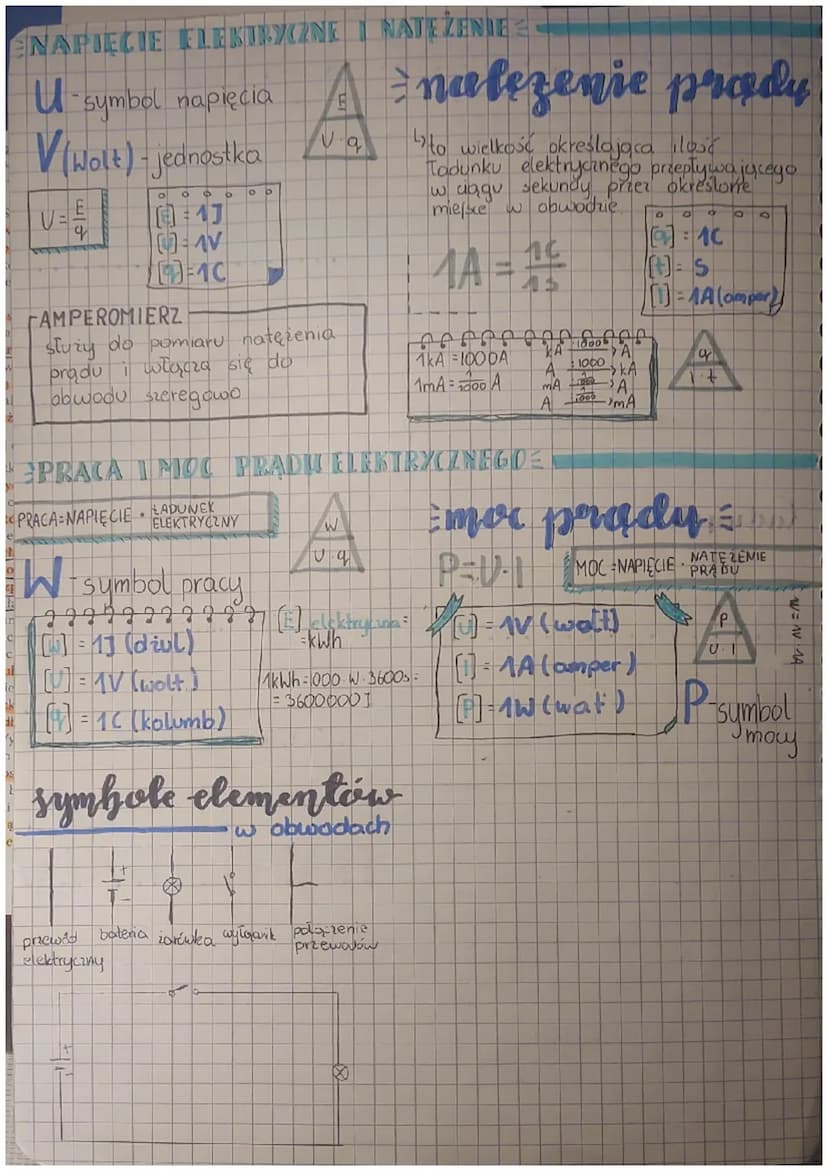 NAPIĘCIE ELEKTRYCZNE I NATĘŻENIE
U - symbol napięcia
V (Wolt) - jednostka
E
U · q
U = E/q
[E] = 1J
[U] = 1V
[q] = 1C
AMPEROMIERZ
służy do pomiaru natężenia
prądu i włącza się do
obwodu szeregowo
natężenie prądu
to wielkość określająca ilość
ładunku elektrycznego przepływającego
w ciągu sekundy przez określone
miejsce w obwodzie
1A = 1C/1s
[q] = 1C
[t] = S
[I] = 1A (amper)
1kA = 1000A
1mA = 1/1000 A
kA ·1000 → A
A :1000 → kA
mA 1/1000 → A
A 1/1000 → mA
q
I · t
PRACA I MOC PRĄDU ELEKTRYCZNEGO
PRACA = NAPIĘCIE · ŁADUNEK ELEKTRYCZNY
W
U · q
W - symbol pracy
[W] = 1J (dżul)
[U] = 1V (wolt)
[q] = 1C (kolumb)
[E] elektryczna =
= kWh
1kWh = 1000 · W · 3600s =
= 3600000J
moc prądu
P = U · I
MOC = NAPIĘCIE · NATĘŻENIE PRĄDU
[U] = 1V (wolt)
[I] = 1A (amper)
[P] = 1W (wat)
P
U · I
W = 1V · 1A
P - symbol
mocy
symbole elementów
w obwodach
+
-
przewód elektryczny
bateria
żarówka
wyłącznik
połączenie przewodów
+
-